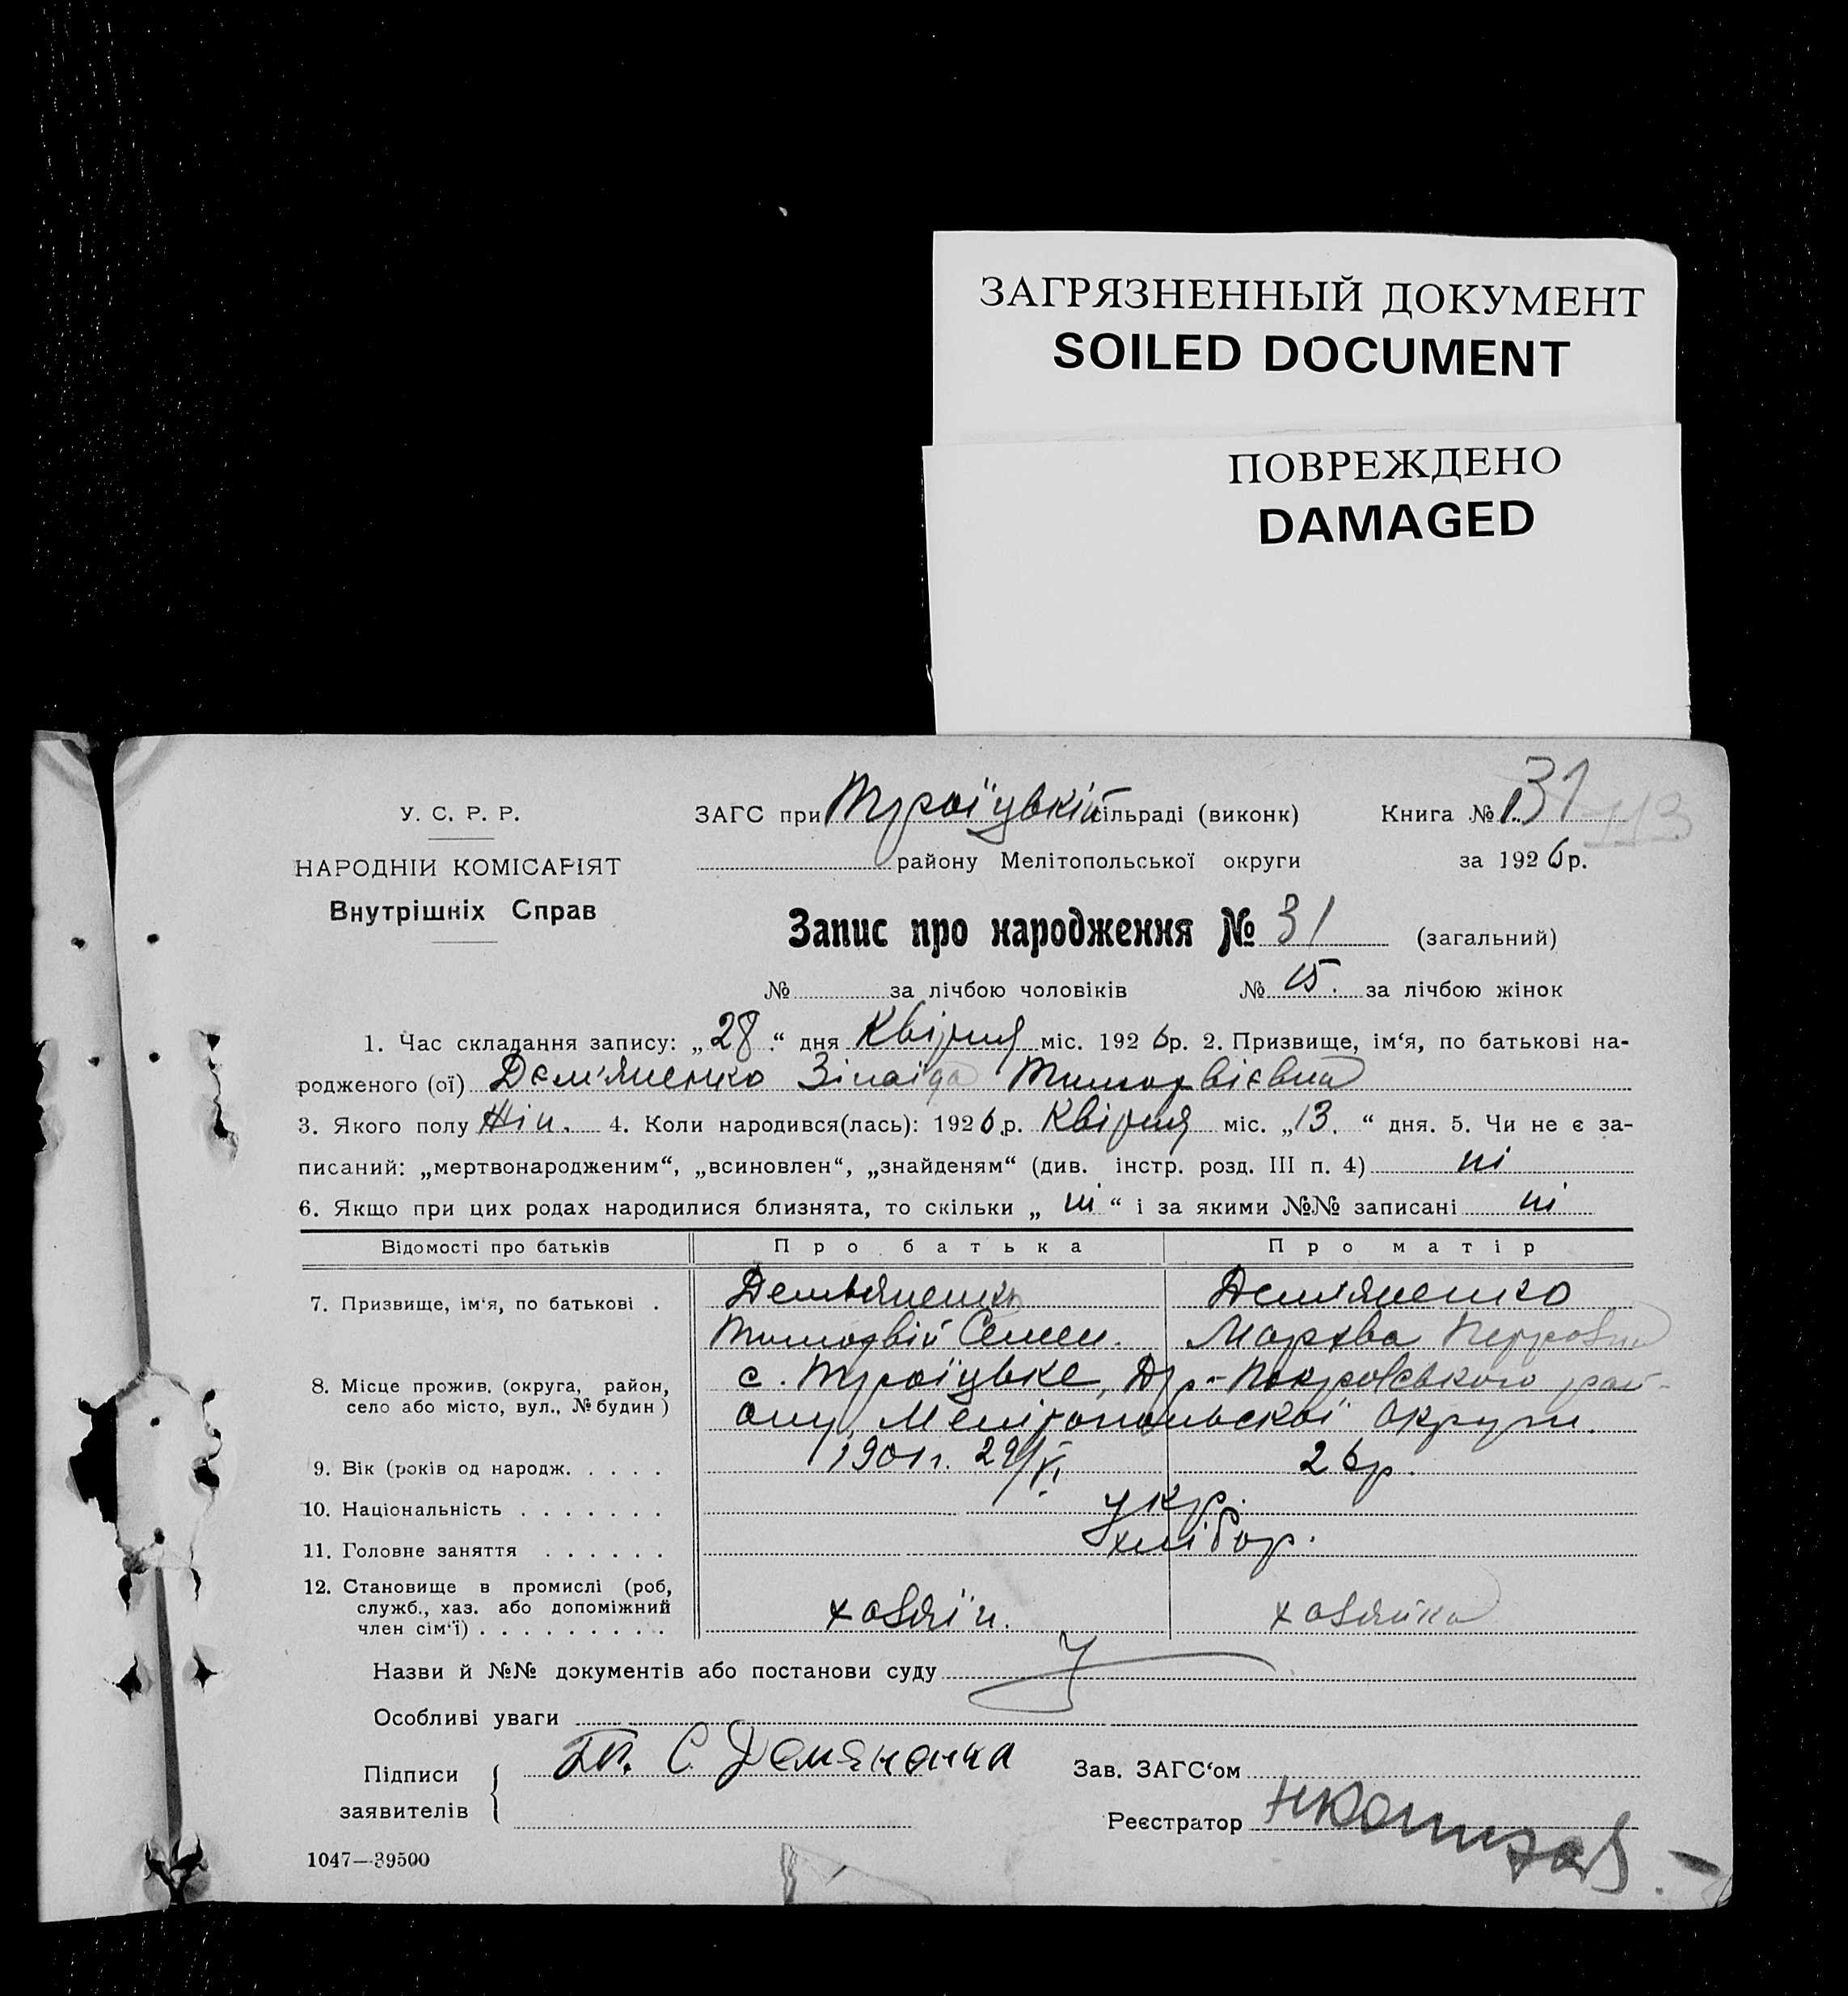 ЗАГРЯЗНЕННЫЙ ДОКУМЕНТ
SOILED DOCUMENT
ПОВРЕЖДЕНО
DAMAGED
31
113
У. С. Р. Р.
ЗАГС при Троїцькій сільраді (виконк) Книга № 1.
НАРОДНІЙ КОМІСАРІЯТ
району Мелітопольської округи за 1926 р.
Внутрішніх Справ
Запис про народження № 31 (загальний)
№ за лічбою чоловіків № 15. за лічбою жінок
1. Час складання запису: „28“ дня Квітня міс. 1926 р. 2. Призвище, ім‘я, по батькові на-
родженого (ої) Дем'яненко Зінаїда Тимофвієвна
3. Якого полу Жін. 4. Коли народився(лась): 1926 р. Квітня міс. „13.“ дня. 5. Чи не є за-
писаний: „мертвонародженим“, „всиновлен“, „знайденям“ (див. інстр. розд. III п. 4) ні
6. Якщо при цих родах народилися близнята, то скільки „ні“ і за якими №№ записані ні
Відомості про батьків Про батька Про матір
7. Призвище, ім‘я, по батькові . Демьяненко Дем'яненко
Тимофвій Семен. Мархва Петровна
8. Місце прожив. (округа, район, с. Троїцьке, Др-Покровського рай-
село або місто, вул., № будин) ону, Мелітопольскої округи.
9. Вік (років од народж. . . . . 1901 г. 29/VI. 26 р.
10. Національність . . . . . . . укр.
11. Головне заняття . . . . . . хлібор.
12. Становище в промислі (роб,
служб., хаз. або допоміжний хазяїн. хазяйка
член сім‘ї) . . . . . . . . .
Назви й №№ документів або постанови суду
Особливі уваги
Підписи С Демяненка Зав. ЗАГС‘ом
заявителів Реєстратор
1047—39500